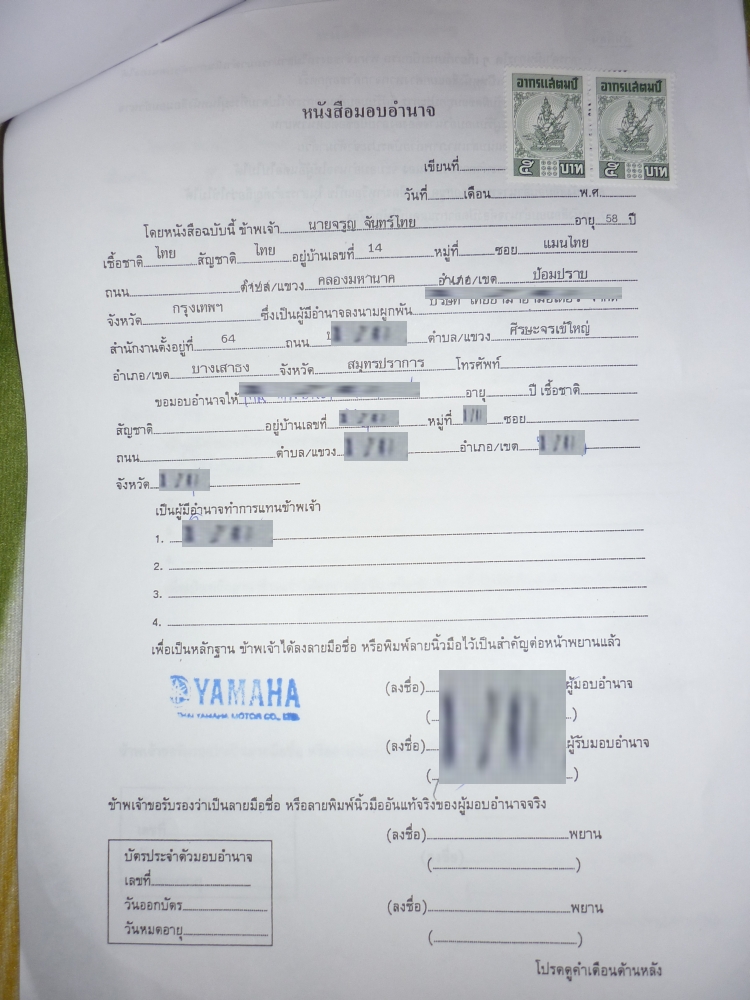 อากรแสตมป์ อากรแสตมป์
๕ บาท ๕ บาท
หนังสือมอบอำนาจ
เขียนที่
วันที่ เดือน พ.ศ
โดยหนังสือฉบับนี้ ข้าพเจ้า นายจรูญ จันทร์ไทย อายุ 58 ปี
เชื้อชาติ ไทย สัญชาติ ไทย อยู่บ้านเลขที่ 14 หมู่ที่ ซอย แมนไทย
ถนน ตำบล/แขวง คลองมหานาค อำเภอ/เขต ป้อมปราบ
จังหวัด กรุงเทพฯ ซึ่งเป็นผู้มีอำนาจลงนามผูกพัน
สำนักงานตั้งอยู่ที่ 64 ถนน ตำบล/แขวง ศีรษะจรเข้ใหญ่
อำเภอ/เขต บางเสาธง จังหวัด สมุทรปราการ โทรศัพท์
ขอมอบอำนาจให้ อายุ ปี เชื้อชาติ
สัญชาติ อยู่บ้านเลขที่ หมู่ที่ ซอย
ถนน ตำบล/แขวง อำเภอ/เขต
จังหวัด
เป็นผู้มีอำนาจทำการแทนข้าพเจ้า
1.
2.
3.
4.
เพื่อเป็นหลักฐาน ข้าพเจ้าได้ลงลายมือชื่อ หรือพิมพ์ลายนิ้วมือไว้เป็นสำคัญต่อหน้าพยานแล้ว
YAMAHA
THAI YAMAHA MOTOR CO., LTD.
(ลงชื่อ) ผู้มอบอำนาจ
( )
(ลงชื่อ) ผู้รับมอบอำนาจ
( )
ข้าพเจ้าขอรับรองว่าเป็นลายมือชื่อ หรือลายพิมพ์นิ้วมืออันแท้จริงของผู้มอบอำนาจจริง
(ลงชื่อ) พยาน
( )
(ลงชื่อ) พยาน
( )
บัตรประจำตัวมอบอำนาจ
เลขที่
วันออกบัตร
วันหมดอายุ
โปรดดูคำเตือนด้านหลัง